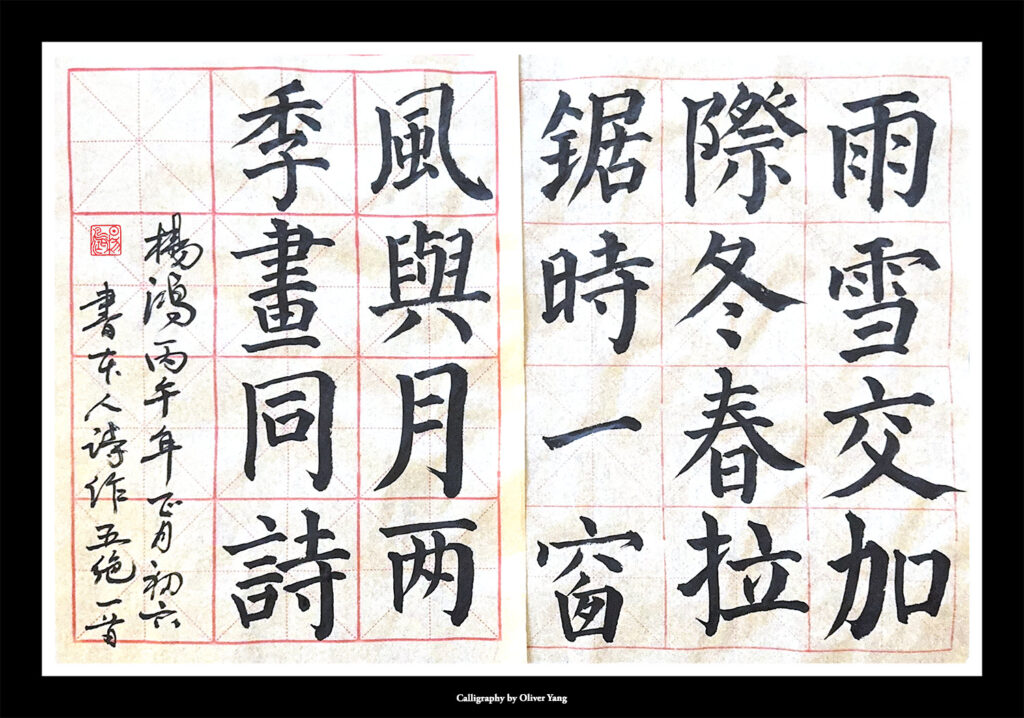 雨雪交加
際冬春拉
鋸時一窗
風與月两
季畫同詩
楊鴻丙午年正月初六
書本人詩作五絕一首
Calligraphy by Oliver Yang